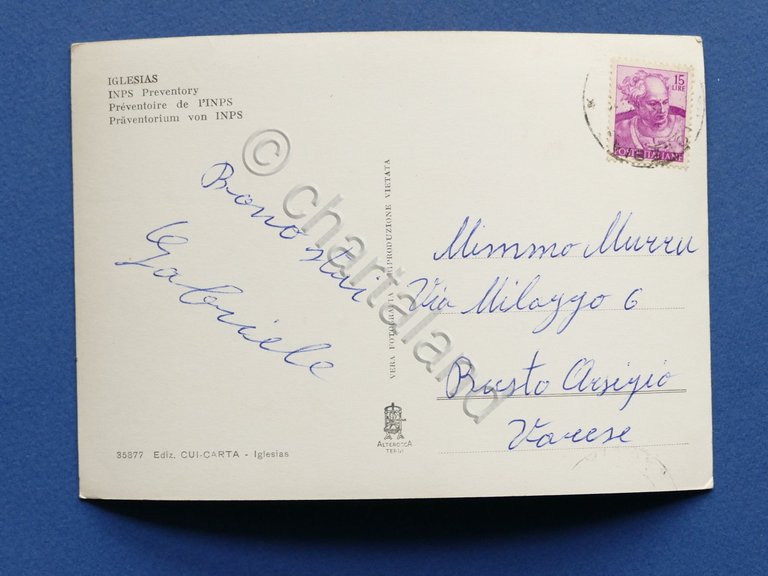 IGLESIAS
INPS Preventory
Préventoire de l'INPS
Präventorium von INPS
15
LIRE
POSTE ITALIANE
Gabriele
VERA FOTOGRAFIA RIPRODUZIONE VIETATA
Mimmo Murru
Via Milazzo 6
Busto Arsizio
Varese
ALTEROCCA
TERNI
35877 Ediz. CUI-CARTA - Iglesias
© chartaland